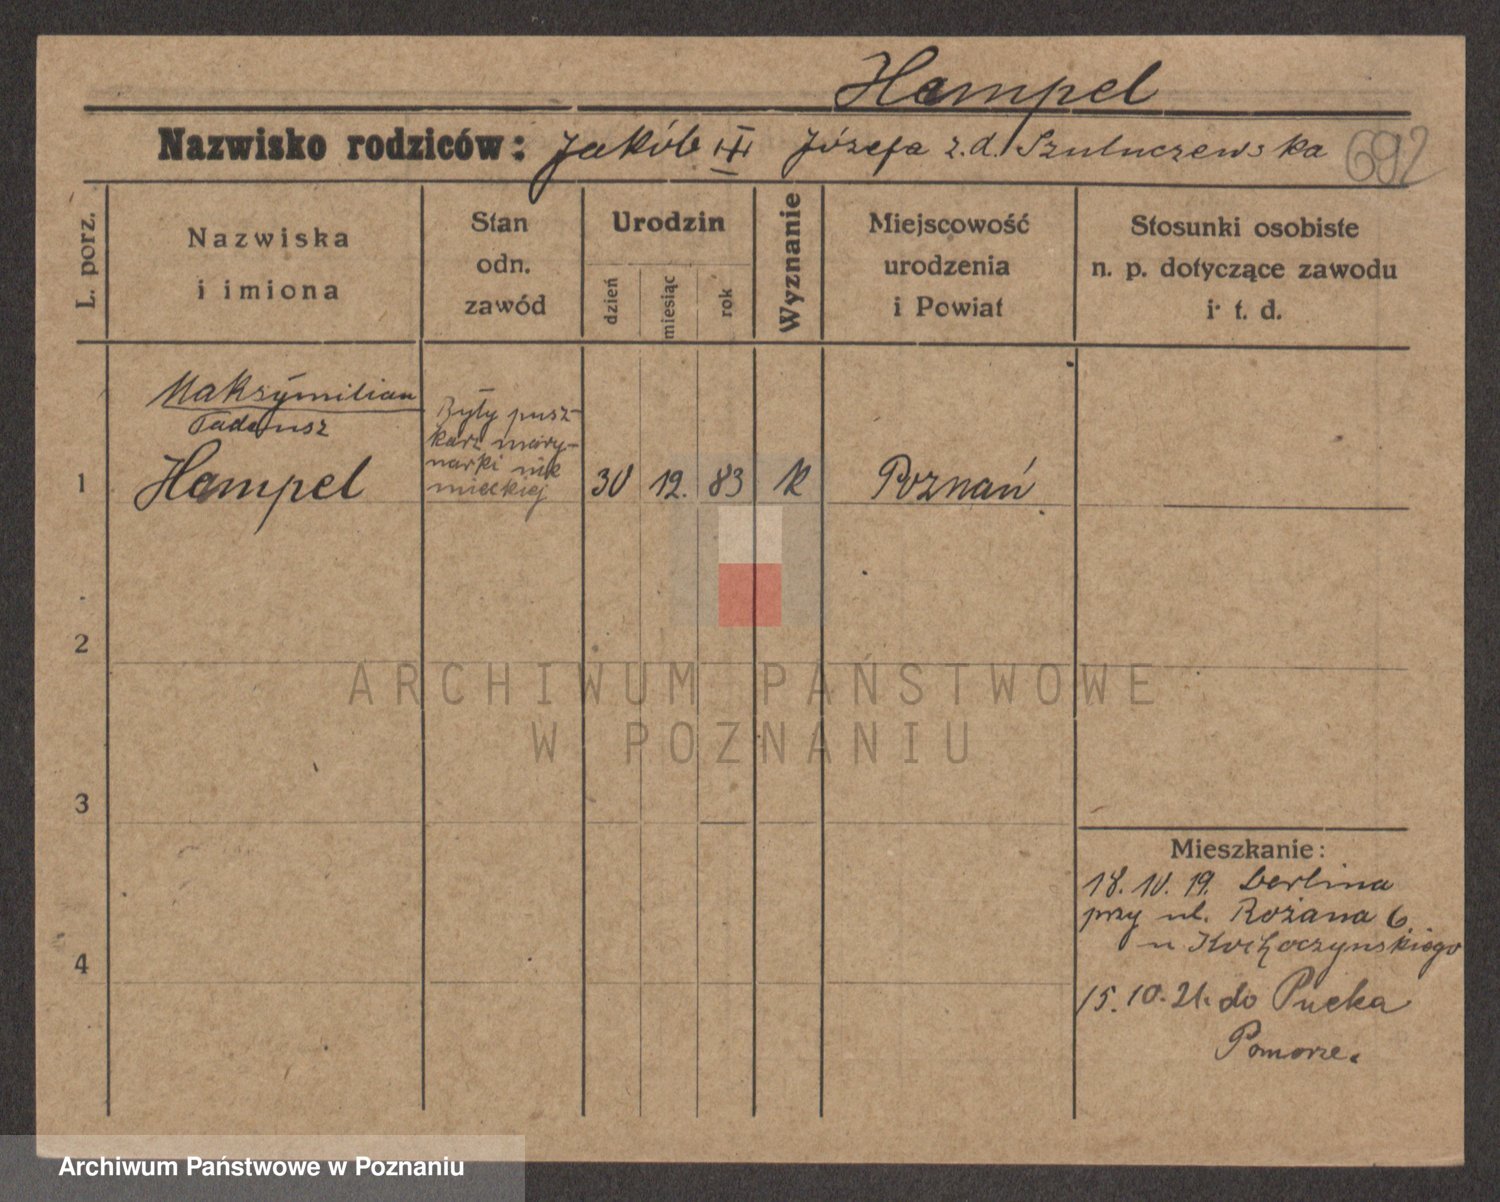 Hempel
Nazwisko rodziców: Jakób III Józefa z.d. Szulczewska 692
L. porz.
Nazwiska
i imiona
Stan
odn.
zawód
Urodzin
dzień
miesiąc
rok
Wyznanie
Miejscowość
urodzenia
i Powiat
Stosunki osobiste
n. p. dotyczące zawodu
i t. d.
Maksymilian
Tadeusz
1 Hempel
Były pusz-
karz mary-
narki nie
mieckiej
30 12. 83 K Poznań
2
3
4
Mieszkanie:
18. 10. 19. Berlina
przy ul. Rożana 6
u
15. 10. 21. do Pucka
Pomorze.
ARCHIWUM PAŃSTWOWE
W POZNANIU
Archiwum Państwowe w Poznaniu